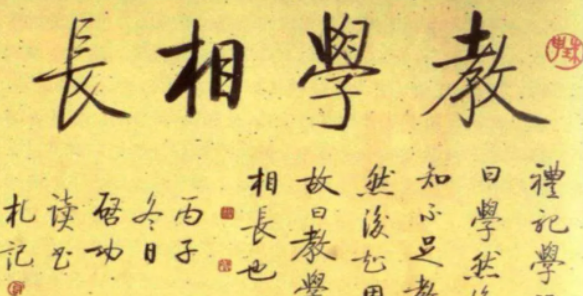 教學相長
禮記學
曰學然後
知不足教
然後知困
故曰教學
相長也
丙子
冬日
啓功
读书
札記